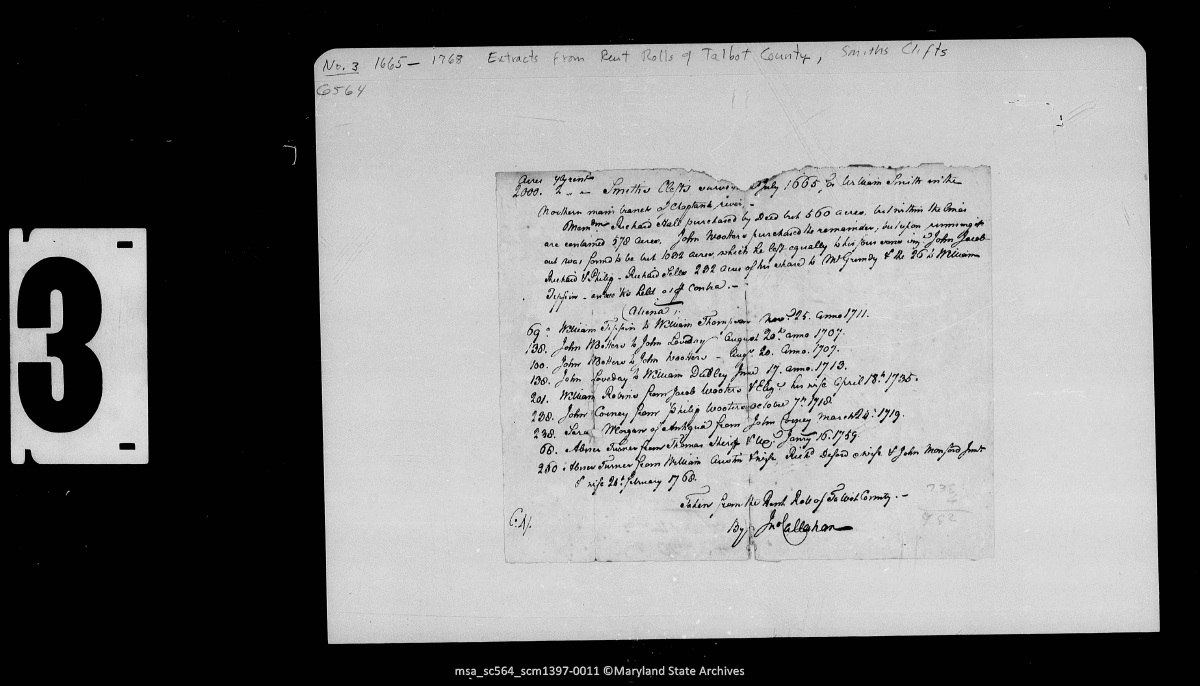 No. 3 1665– 1768 Extracts from Rent Rolls of Talbot County, Smiths Clifts
G564
3
Acres
2000. Smiths Clifts July 1665, for William Smith in the
Northern main branch of Choptank river.–
Richard Hall purchased by Deed but 560 acres, but within the lines
are contained 578 acres, John Wootters purchased the remainder, but upon running it
out was found to be but 1032 acres, which he left equally to his four sons John Jacob
Richard & Philip – Richard Sells 232 acres of his share to Mr Grundy & the 26 to William
Tippin – held contra.–
Aliena
69. William Tippin to William Thompson Novr. 25. anno 1711.
138. John Wotters to John Loveday August 20th anno 1707.
100. John Wotters to John Wootters – Augt 20. Anno. 1707.
138. John Loveday to William Dudley June 17. anno. 1713.
201. William Robins from Jacob Wooters & his wife April 18th 1735.
238. John Corney from Philip Wooters October 7th 1718
238. Sara Morgan of Antiqua from John Corney March 24th 1719.
68. Abner Turner from Thomas Sherif & Ux. Janry 16. 1759.
260. Abner Turner from William Austin & wife, Richd Deford & wife & John Monford Junr
& wife 24th february 1768.
Taken from the Rent Roll of Talbot County.–
By Jno Callahan
msa_sc564_scm1397-0011 ©Maryland State Archives